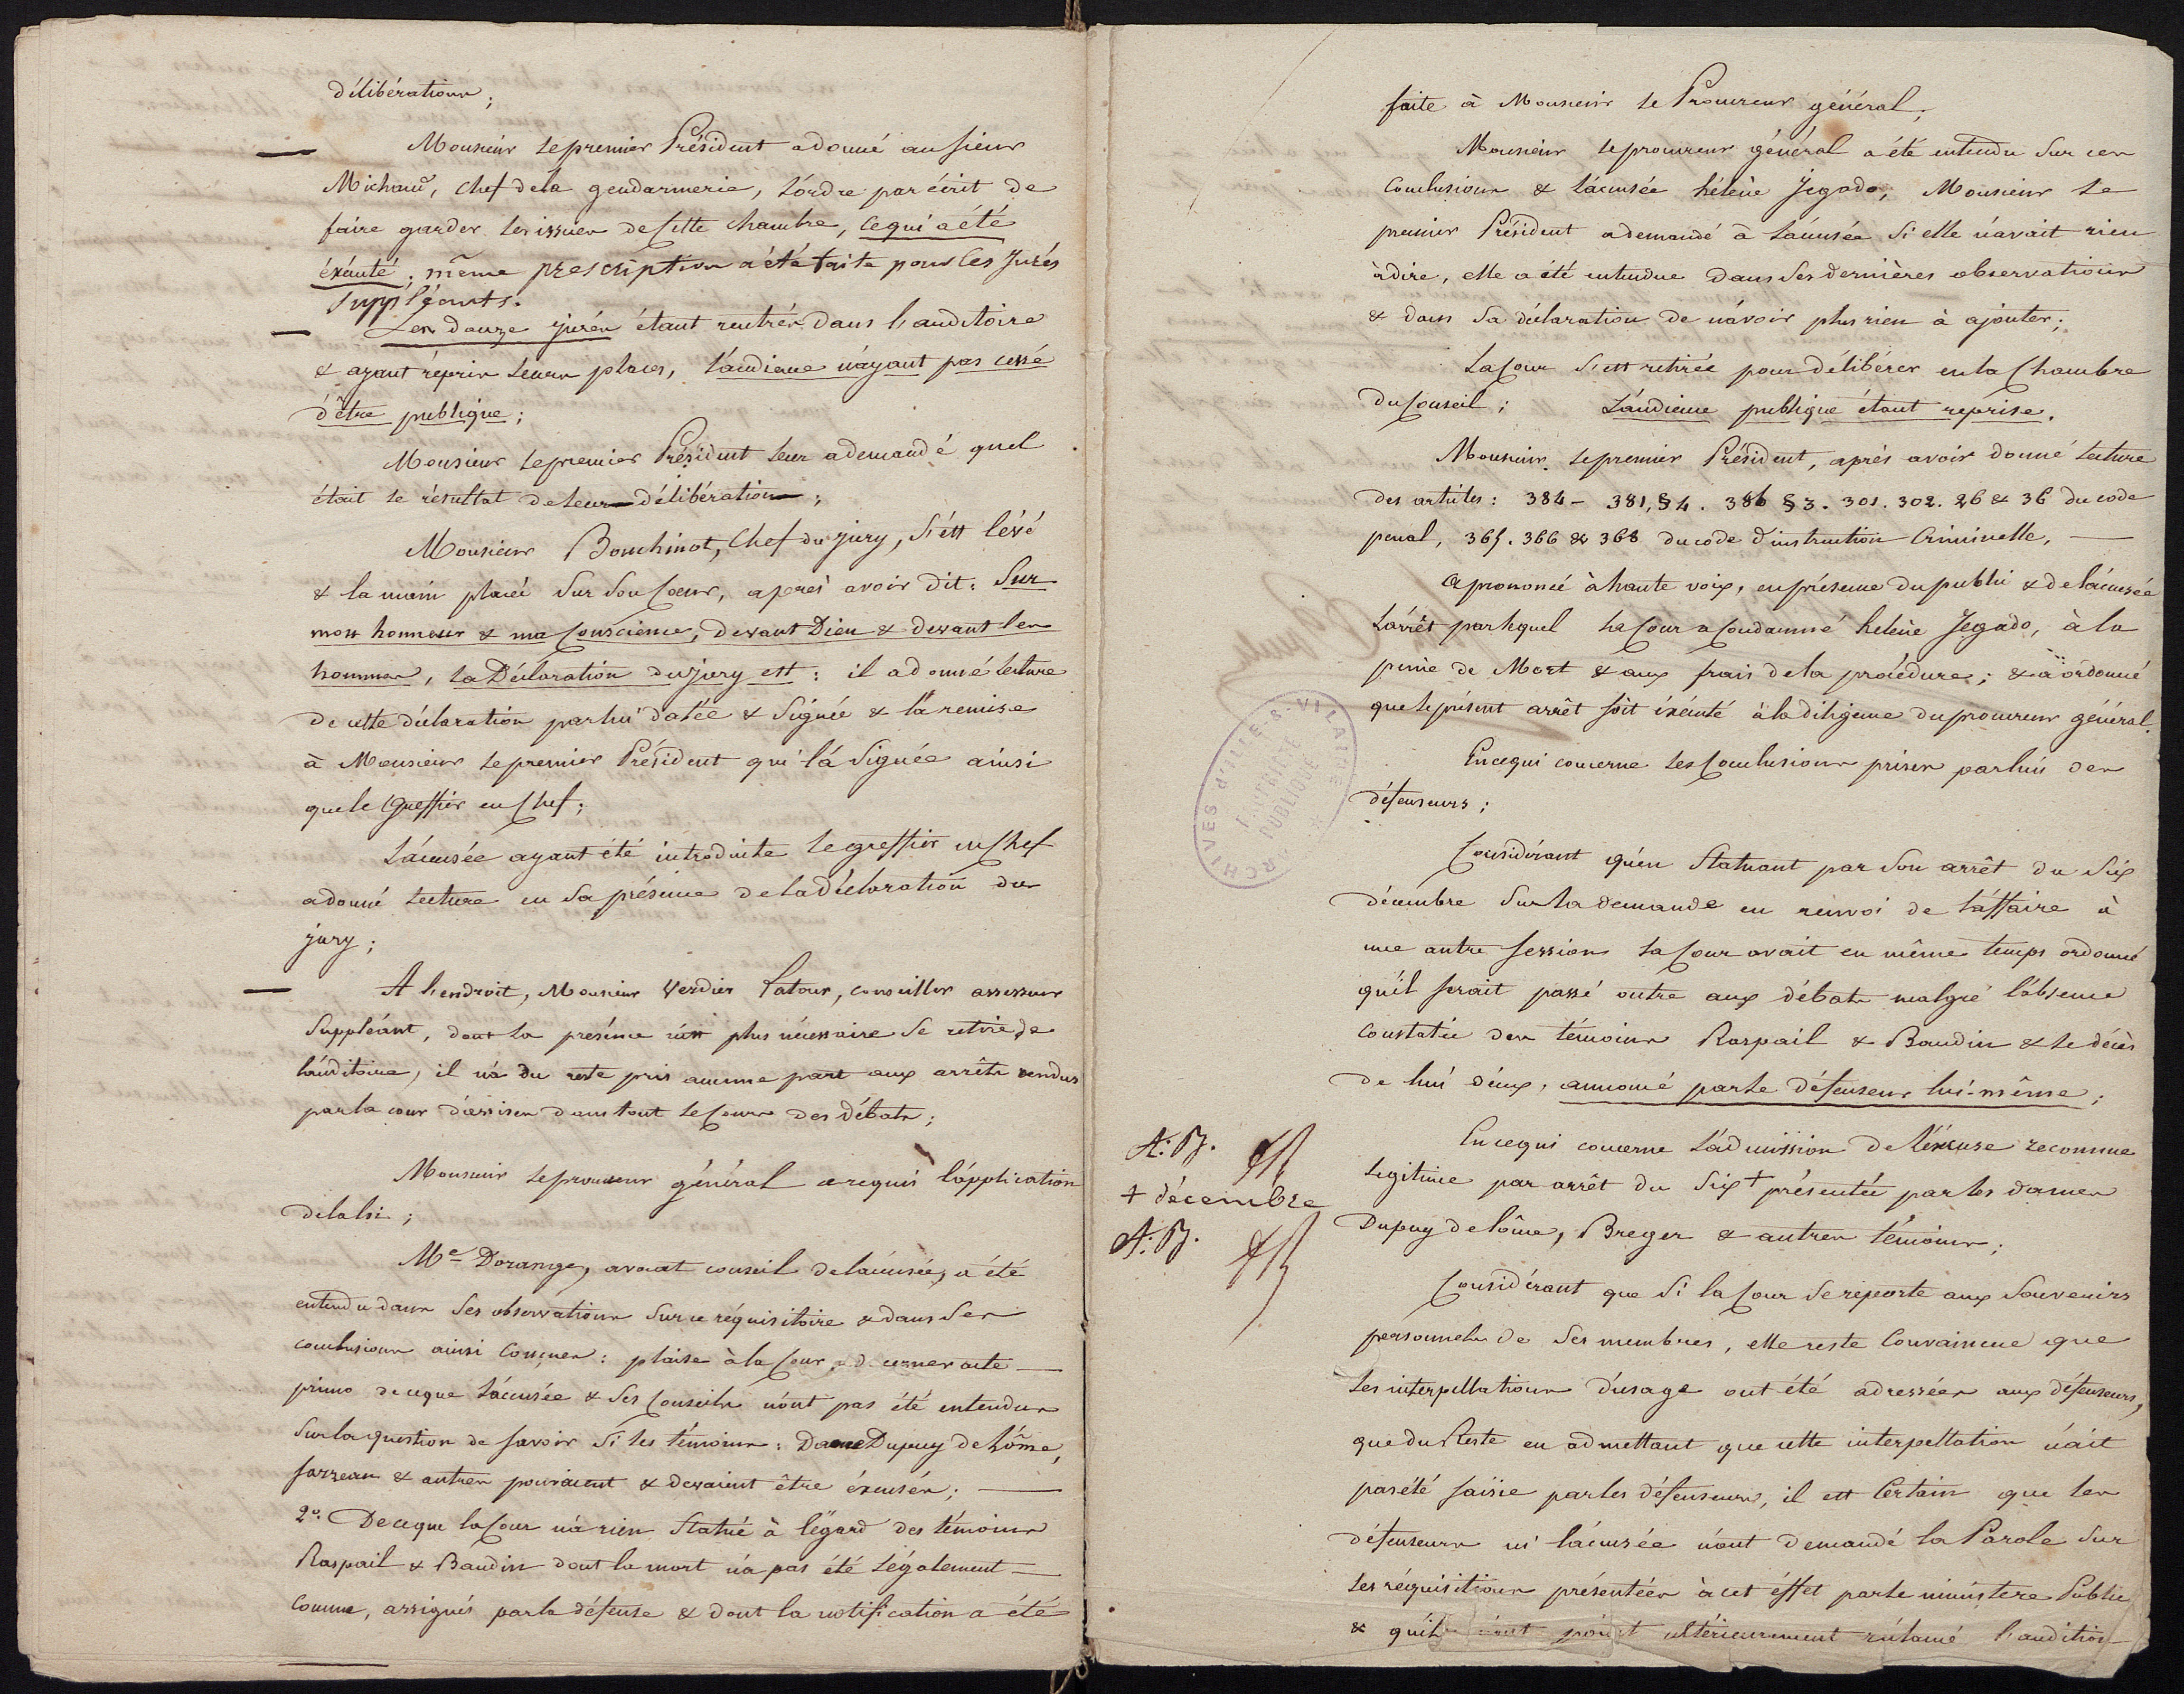 délibérations;
Monsieur le premier Président a donné au sieur
Michaud, chef de la gendarmerie, l'ordre par écrit de
faire garder les issues de cette chambre, ce qui a été
éxécuté; même prescription a été faite pour les Jurés
suppléants.
Les douze jurés étant rentrés dans l'auditoire
& ayant répris leurs places, l'audience n'ayant pas cessé
d'être publique;
Monsieur le premier Président leur a demandé quel
était le résultat de leur délibération;
Monsieur Bouchinot, Chef du jury, s'est lévé
& la main placée sur son Coeur, après avoir dit: Sur
mon honneur & ma Conscience, devant Dieu & devant les
hommes, la Déclaration du jury est: il a donné lecture
de cette déclaration par lui datée & signée & l'a remise
à Monsieur le premier Président qui l'a signée ainsi
que le Greffier en Chef;
L'accusée ayant été introduite le greffier en Chef
a donné lecture en sa présence de la déclaration du
jury;
A l'endroit, Monsieur Verdier Latour, conseiller assesseur
suppléant, dont la présence n'est plus nécessaire se retire de
l'auditoire, il n'a du reste pris aucune part aux arrêts rendus
par la cour d'assises dans tout le Cours des débats;
Monsieur le procureur général a requis l'application
de la loi;
Me Dorange, avocat conseil de l'accusée, a été
entendu dans ses observations sur ce réquisitoire & dans ses
conclusions ainsi Conçues: plaise à la Cour décerner acte
primo de ce que l'accusée & ses Conseils n'ont pas été entendus
sur la question de savoir si les témoins: Dame Dupuy de Lôme,
Sarzeau & autres pouvaient & devaient être éxcusés;
2º. De ce que la Cour n'a rien statué à l'égard des témoins
Raspail & Baudin dont la mort n'a pas été légalement
Connue, assignés par la défense & dont la notification a été
faite à Monsieur le Procureur général;
Monsieur le procureur général a été entendu sur ces
Conclusions & l'accusée hélène Jegado; Monsieur le
premier Président a demandé à l'accusée si elle n'avait rien
à dire, elle a été entendue dans ses dernières observations
& dans sa déclaration de n'avoir plus rien à ajouter;
La Cour s'est retirée pour délibérer en la Chambre
du Conseil; L'audience publique étant reprise.
Monsieur le premier Président, après avoir donné lecture
des articles: 384 - 381, § 4. 386 § 3. 301. 302. 26 & 36 du code
penal, 365. 366 & 368 du code d'instruction Criminelle,
a prononcé à haute voix, en présence du public & de l'accusée
L'arrêt par lequel la Cour a Condamné hélène Jegado, à la
peine de Mort & aux frais de la procédure; & a ordonné
que le présent arrêt soit éxécuté à la diligence du procureur général.
En ce qui concerne les Conclusions prises par l'un des
défenseurs;
Considérant qu'en statuant par son arrêt du six
décembre sur la demande en renvoi de l'affaire à
une autre session la Cour avait en même temps ordonné
qu'il serait passé outre aux débats malgré l'absence
constatée des témoins Raspail & Baudin & le décès
de l'un d'eux, annoncé par le défenseur lui-même;
En ce qui concerne l'admission de l'éxcuse reconnue
legitime par arrêt du six + présentée par les dames
Dupuy de lôme, Breger & autres témoins;
A. B.
+ décembre
A. B.
Considérant que si la Cour se reporte aux souvenirs
personnels de ses membres, elle reste Convaincue que
les interpellations d'usage ont été adressées aux défenseurs,
que du Reste en admettant que cette interpellation n'ait
pas été saisie par les défenseurs, il est Certain que les
défenseurs ni l'accusée n'ont demandé la Parole sur
les réquisitions présentées à cet éffet par le ministère Public
& qu'ils n'ont point ultérieurement réclamé l'audition
ARCHIVES d'ILLE-&-VILAINE
PUBLIQUE